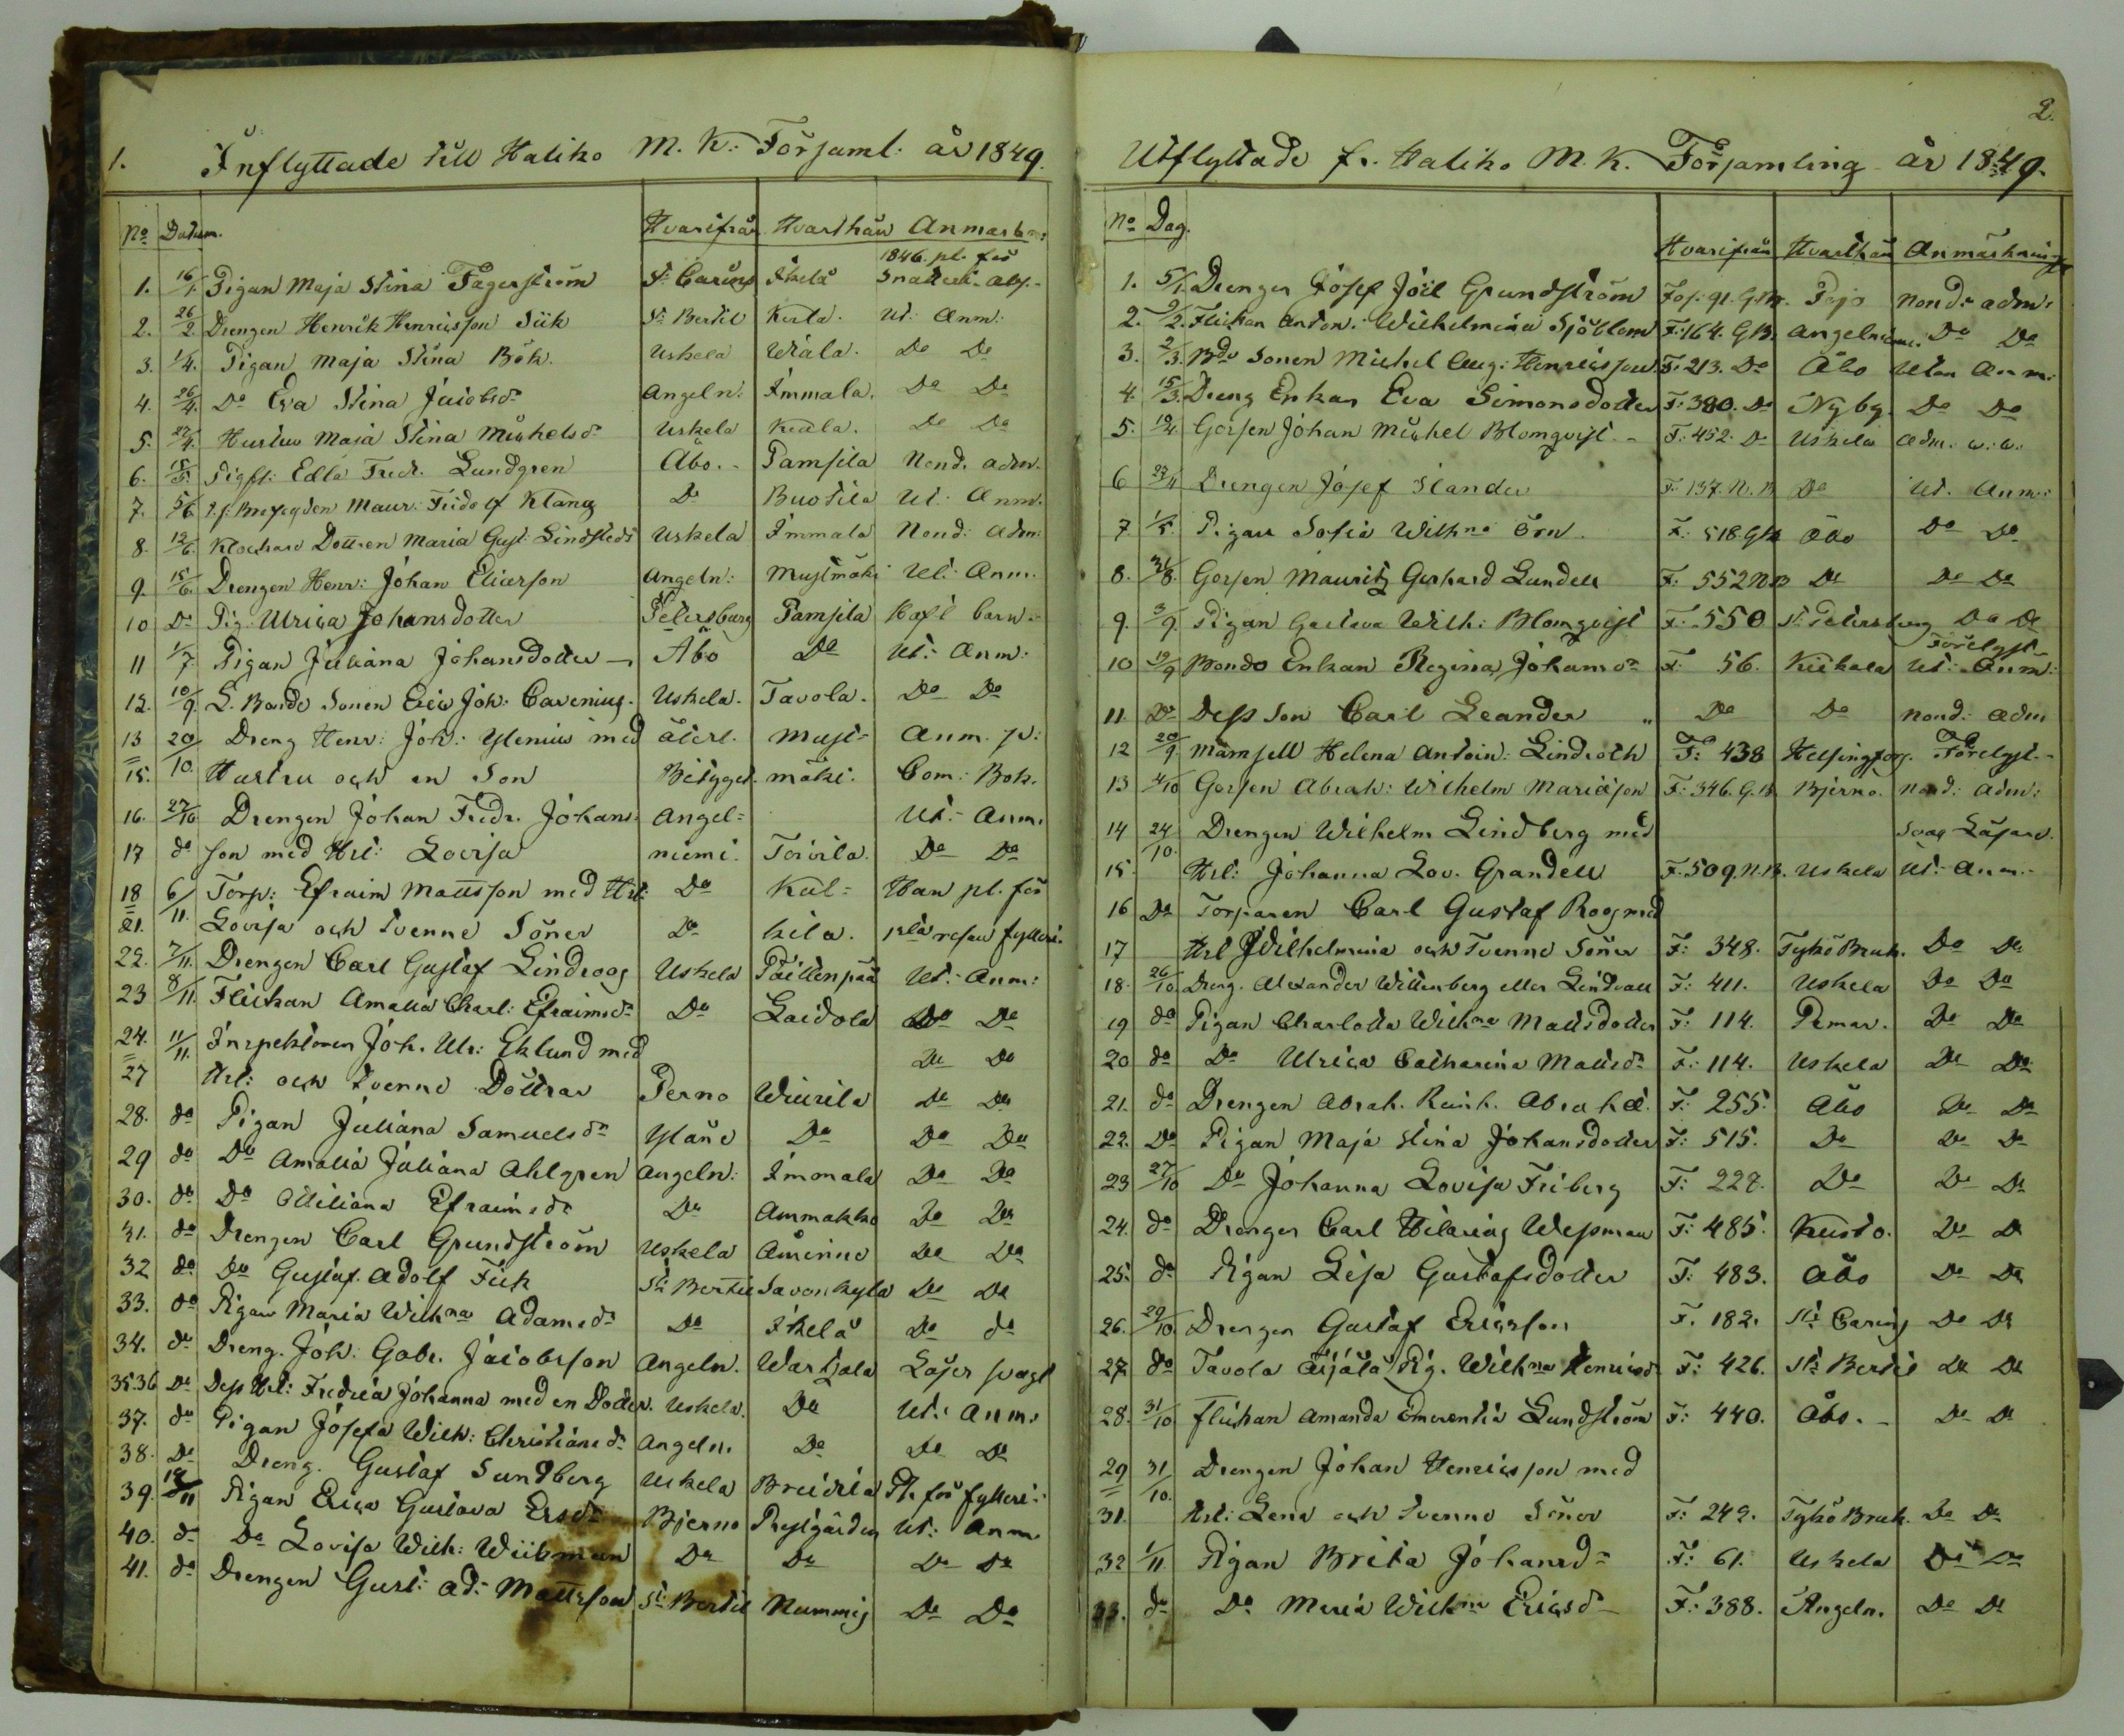 1. Inflyttade till Haliko M. K. Församl. år 1849.
No Datum. Hvarifrån Hvarthän Anmärkn:
1846. pl. för
1. 16/1. Pigan Maja Stina Fagerström St. Carins Ikela Snatteri. Abs.
2. 26/2. Drengen Henrik Henricsson Siik St. Bertil Kesla. Ut. Anm:
3. 1/4. Pigan Maja Stina Böh. Uskela Wiala. Do Do
4. 26/4. Do Eva Stina Jacobsdr Angeln: Immala. Do Do
5. 27/4. Hustru Maja Stina Michelsdr Uskela Do Do
6. 15/5. Edla Fredr. Lundgren Åbo. Pamsila Nond. adm.
7. 5/6. Maur. Fridolf Klang Do Buotila Ut. Anm.
8. 12/6. Klockare Dottren Maria Gust. Lindstedt Uskela Immala Nond: adm:
9. 15/6. Drengen Henr: Johan Eliasson Angeln: Mustmäki Ut. Anm.
10 Do Pig. Ulrica Johansdotter Petersburg Pamsila Haft barn
11 1/7. Pigan Juliana Johansdotter Åbo Do Ut. Anm:
12. 10/9 L. Bonde Sonen Eric Joh: Carenius. Uskela. Tavola. Do Do
13 20/ Dreng Henr: Joh: Ylenius med återl. Must- Anm. p:
15. 10. Hustru och en Son Betyget. mäki. Com: Bok.
16. 27/10 Drengen Johan Fredr. Johans- Angel- Ut. Anm.
17 do son med Hst: Lovisa niemi. Toivila. Do Do
18 6/ Torp: Efraim Mattsson med Hst: Do Kul- Han pl. för
21. 11. Lovisa och tvenne Söner Do kila. 1sta resan fylleri.
22. 7/11. Drengen Carl Gustaf Lindroos Uskela Päitenpää Ut. Anm:
23 8/11. Flickan Amalia Charl: Efraimsdr Do Laidola Do Do
24. 11/11. Inspektoren Joh. Ulr: Eklund med Do Do
27 Hst: och tvenne Döttrar Perno Wiurila Do Do
28. do Pigan Juliana Samuelsdr Yläne Do Do Do
29 do Do Amalia Juliana Ahlgren Angeln: Immala Do Do
30. do Do Ottiliana Efraimsdr Do Ammakko Do Do
31. do Drengen Carl Grundström Uskela Åminne Do Do
32 do Do Gustaf Adolf Fick St: Bertil Savonkylä Do Do
33. do Pigan Maria Wilhna Adamsdr Do Ikelä Do do
34. do Dreng. Joh: Gabr. Jacobsson Angeln. Wartsala Läser svagt
35.36 Do Dess Hst: Fredrica Johanna med en Dotter. Uskela. Do Ut. Anm.
37. do Pigan Josefa Wilh: Christiansdr Angeln. Do Do Do
38. Do Dreng. Gustaf Sundberg Uskela Breidila Pl. för fylleri.
39. 12/11 Pigan Erica Gustava Ersdr Bjerno Prestgården Ut: Anm
40. do Do Lovisa Wilh: Wiikman Do Do Do Do
41. do Drengen Gust: Ad: Mattsson St: Bertil Nummis Do Do
2.
Utflyttade fr. Haliko M. K. Församling år 1849.
No Dag. Hvarifrån Hvarthän Anmärkning
1. 5/1. Drengen Josef Joel Grundström Fo. 91. G.B. Pojo Nond. adm.
2. 9/2. Flickan Anton. Wilhelmina Sjöblom F: 164. G.B. Angelniemi. Do Do
3. 2/3. Bde Sonen Michel Aug: Henricsson. F: 213. Do Åbo Utan Anm:
4. 15/3. Dreng Enkan Eva Simonsdotter F: 380. Do Nyby. Do Do
5. 19/4 Gossen Johan Michel Blomqvist F: 452. Do Uskela Adm.
6 27/4 Drengen Josef Slander F: 137. N.B Do Ut. Anm:
7. 1/5. Pigan Sofia Wilhna Örn. F: 518. G.B Åbo Do Do
8. 31/8. Gossen Mauritz Gerhard Lundell F: 552 N.B Do Do Do
9. 3/9. Pigan Gustava Wilh: Blomqvist F: 550 St. Petersburg Do Do
Förelyst
10 19/9 Bonde Enkan Regina Johansdr F: 56. Kiikala Ut: Anm:
11. Do Dess Son Carl Leander „ Do Do Nond: adm
12 20/9 Mamsell Helena Antoin: Lindroth F: 438 Helsingfors. Förelyst.
13 4/10 Gossen Abrah: Wilhelm Mariæson F: 346. G.B. Bjerno. Nond: adm:
14 24/ Drengen Wilhelm Lindberg med Svag Läsare.
15. 10. Hst: Johanna Lov. Grandell F. 509. N.B. Uskela Ut. Anm.
16 Do Torparen Carl Gustaf Roos med
17 Hst Wilhelmina och Tvenne Söner F: 348. Tykö Bruk. Do Do
18. 26/10 Dreng. Alexander Wittenberg eller Lindvall F: 411. Uskela Do Do
19 do Pigan Charlotta Wilhna Mattsdotter F: 114. Pemar. Do Do
20 do Do Ulrica Catharina Mattsdr F: 114. Uskela Do Do
21. do Drengen Abrah. Reinh. Abrahæ. F: 255. Åbo Do Do
22. Do Pigan Maja Stina Johansdotter F: 515. Do Do Do
23 27/10 Do Johanna Lovisa Friberg F: 227. Do Do Do
24. do Drengen Carl Hilarius Wessman F: 485. Kusto. Do Do
25. do Pigan Lisa Gustafsdotter F: 483. Åbo Do Do
26. 29/10 Drengen Gustaf Ericsson F. 182. St: Carins Do Do
27. do Tavola Äijälä Pig. Wilhna Henricsdr F: 426. St: Bertil Do Do
28. 31/10 Flickan Amanda Emerentia Lundström F: 440. Åbo. Do Do
29 31/ Drengen Johan Henricsson med
31. 10. Hst: Lena och tvenne Söner F: 249. Tykö Bruk. Do Do
32 1/11. Pigan Brita Johansdr F: 61. Uskela Do Do
33. do Do Maria Wilhna Ericsdr F: 388. Angeln. Do Do